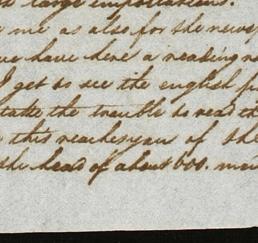 large importations.
me as also for the newsp
have here a reading r
I get to see the english p
take the trouble to read th
this reaches you of the
the head of about 600. me